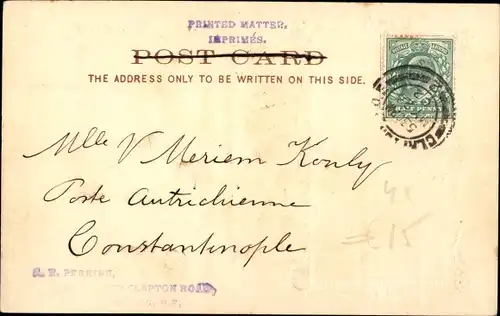 PRINTED MATTER,
IMPRIMÉS.
POST CARD
THE ADDRESS ONLY TO BE WRITTEN ON THIS SIDE.
HALF PENNY
Mlle V Meriem Konly
Poste Autrichienne
Constantinople
CLAPTON ROAD,
41
£15